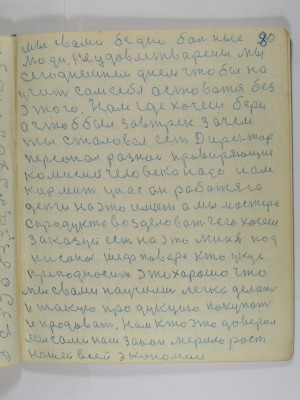 80
мы свами бедно больные
люди. Неудовлетварены мы
сегоднешнем днем чтобы на
учит сам себя остоватся без
этого. Нам где хочеш бери
а чтоб был завтрек зачем
ты сталовся ест Директор
персонал разнои правиряющие
комисия человека надо и ам
кормит унас он работяга
дети на это имеет а мы мастера
с продукта возделоват чего хочеш
заказує ест на это мин под
писаноє шеф повара. Кто уже
преподносит это хорошо что
мы свами научили легко делат
и такую продукцию покупат
и продоват. Нам кто это доверил
мы сами наш закон мерило рост
нашей всей экономии